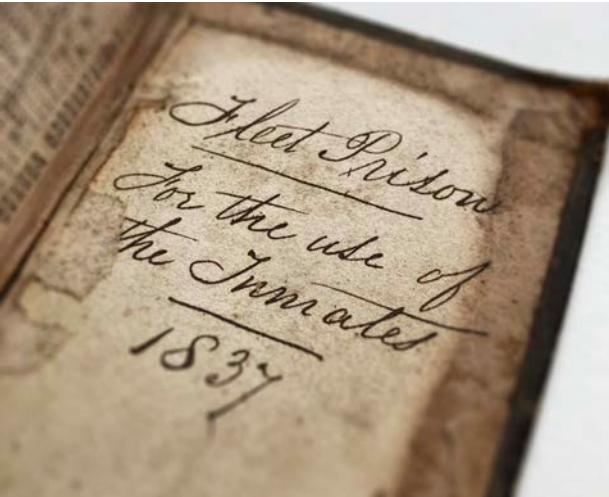 Fleet Prison
For the use of
the Inmates
1837